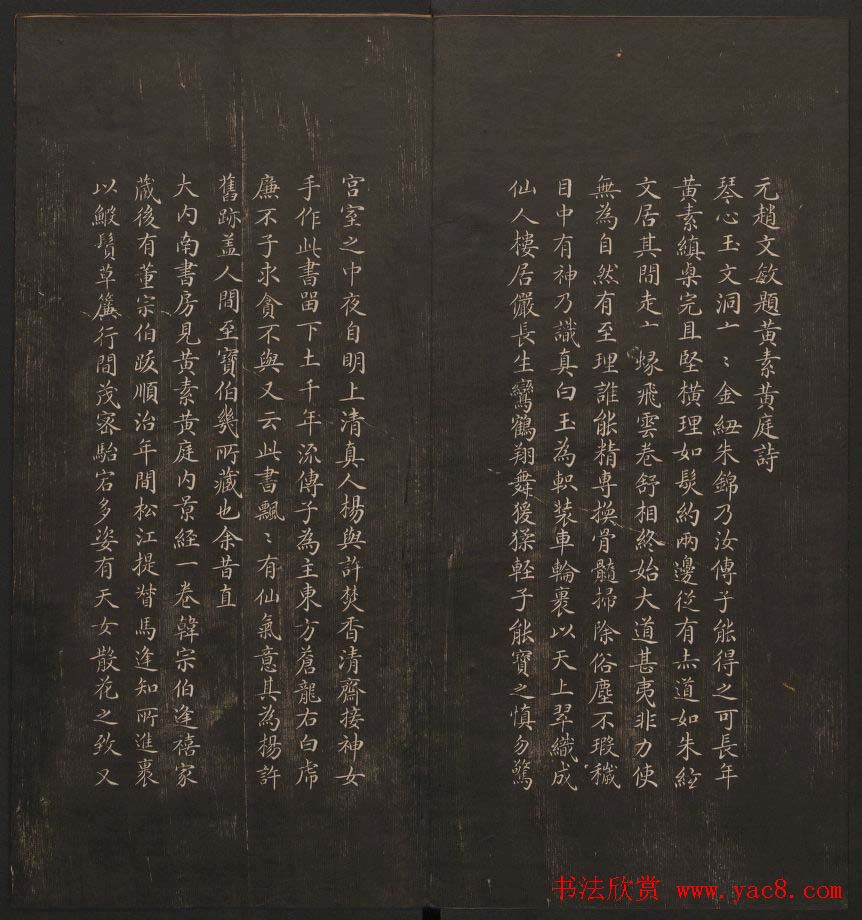 元趙文敏題黃素黃庭詩
琴心玉文洞〻〻金鈕朱錦乃汝傳子能得之可長年
黃素縝槀完且堅橫理如髮約兩邊從有赤道如朱絃
文居其間走〻蜧飛雲卷舒相終始大道甚夷非力使
無為自然有至理誰能精專換骨髓掃除俗塵不瑕穢
目中有神乃識真白玉為軹裝車輪裹以天上翠織成
仙人樓居儼長生鸞鶴翔舞猨猱輕子能寶之慎勿驚
宮室之中夜自明上清真人楊與許焚香清齋接神女
手作此書留下土千年流傳子為主東方蒼龍右白虎
廉不予求貪不與又云此書飄〻有仙氣意其為楊許
舊跡盖人間至寶伯幾所藏也余昔直
大內南書房見黃素黃庭內景經一卷韓宗伯逢禧家
藏後有董宗伯跋順治年間松江提督馬逢知所進裹
以鰕鬚草簾行間茂密駘宕多姿有天女散花之致又
书法欣赏 www.yac8.com